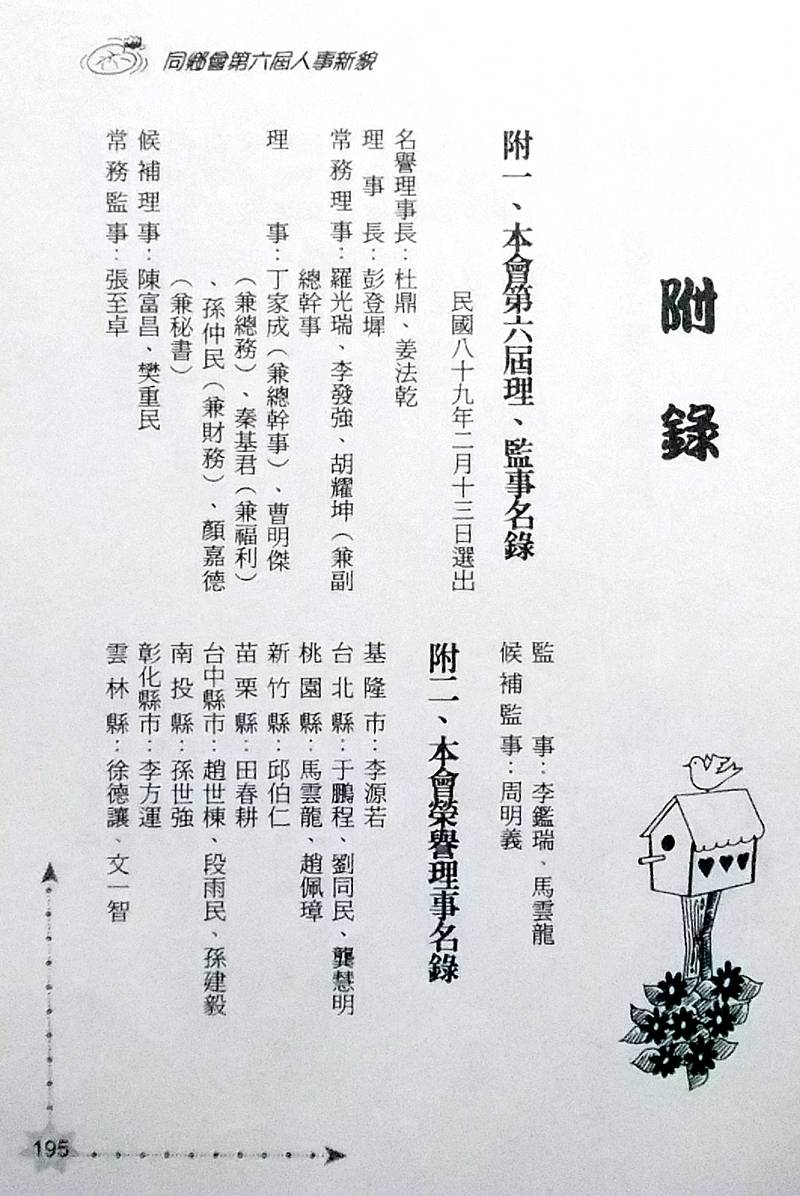 同鄉會第六屆人事新貌
附錄
附一、本會第六屆理、監事名錄
民國八十九年二月十三日選出
名譽理事長：杜鼎、姜法乾
理事長：彭登墀
常務理事：羅光瑞、李發強、胡耀坤（兼副
總幹事
理事：丁家成（兼總幹事）、曹明傑
（兼總務）、秦基君（兼福利）
、孫仲民（兼財務）、顏嘉德
（兼秘書）
候補理事：陳富昌、樊重民
常務監事：張至卓
監事：李鑑瑞、馬雲龍
候補監事：周明義
附二、本會榮譽理事名錄
基隆市：李源若
台北縣：于鵬程、劉同民、龔慧明
桃園縣：馬雲龍、趙佩璋
新竹縣：邱伯仁
苗栗縣：田春耕
台中縣市：趙世棟、段雨民、孫建毅
南投縣：孫世強
彰化縣市：李方運
雲林縣：徐德讓、文一智
195